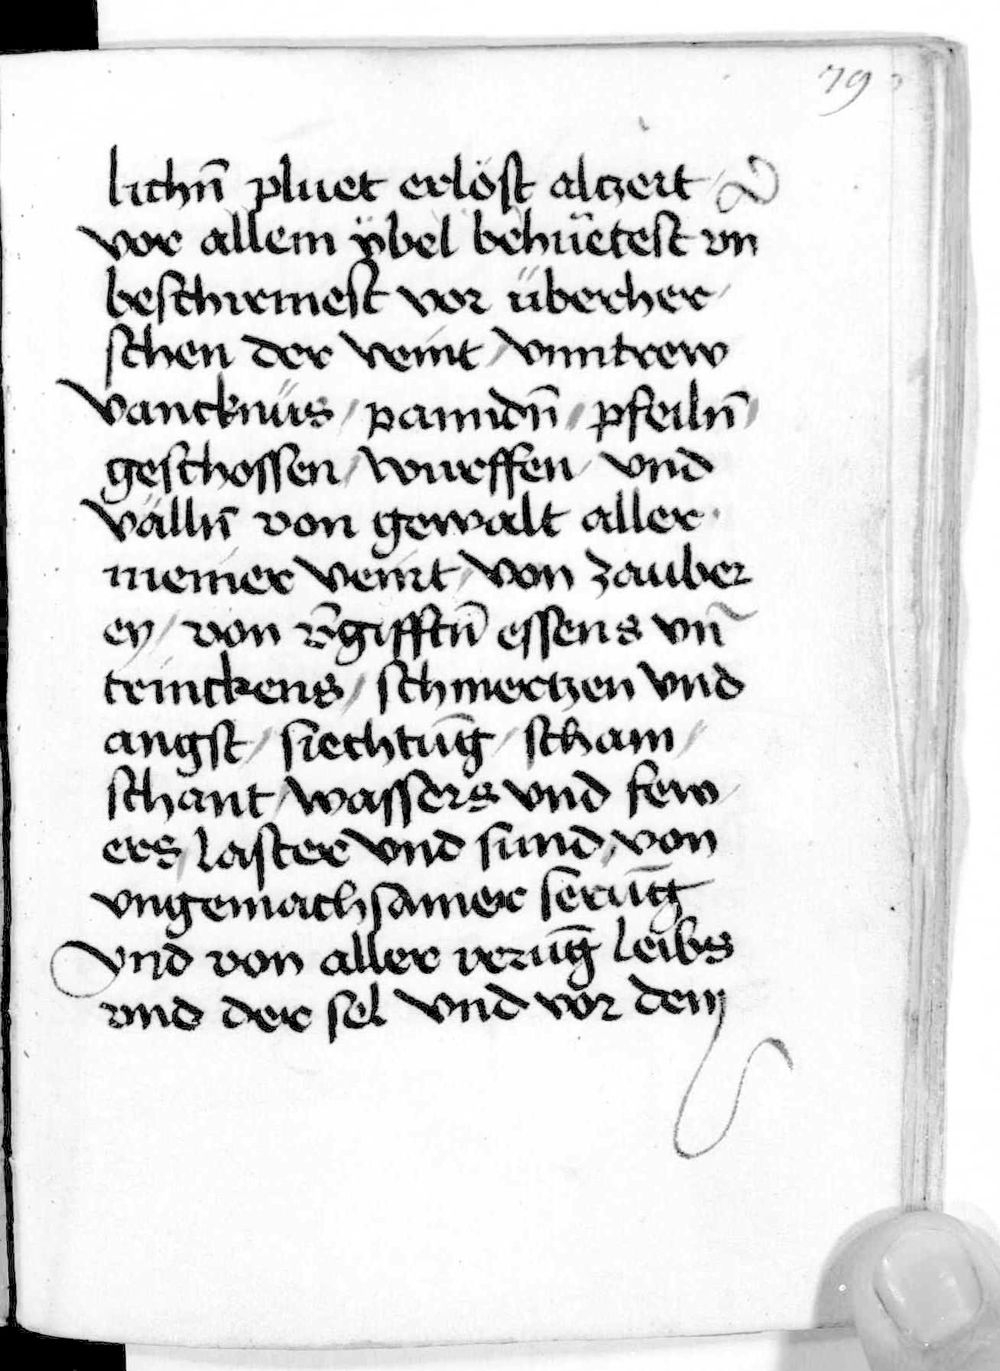 79
lichn̄ pluet erlöst alczeit
vor allem ÿbel behüetest vn
beschirmest vor überher
schen der veint / vnntrew
vancknüs / panndn̄ / pfeiln̄ /
geschossen / wurffen / vnd
välln̄ von gewalt aller
meiner veint / von zauber
ey / von v̄gifftn̄ essens vn̄
trinckens / schmertzen vnd
angst / siechtūg / scham /
schant / wassers vnd few
ers / laster vnd sund / von
vngemachsamer serūg
vnd von aller verūg leibs
vnd der sel vnd vor dem